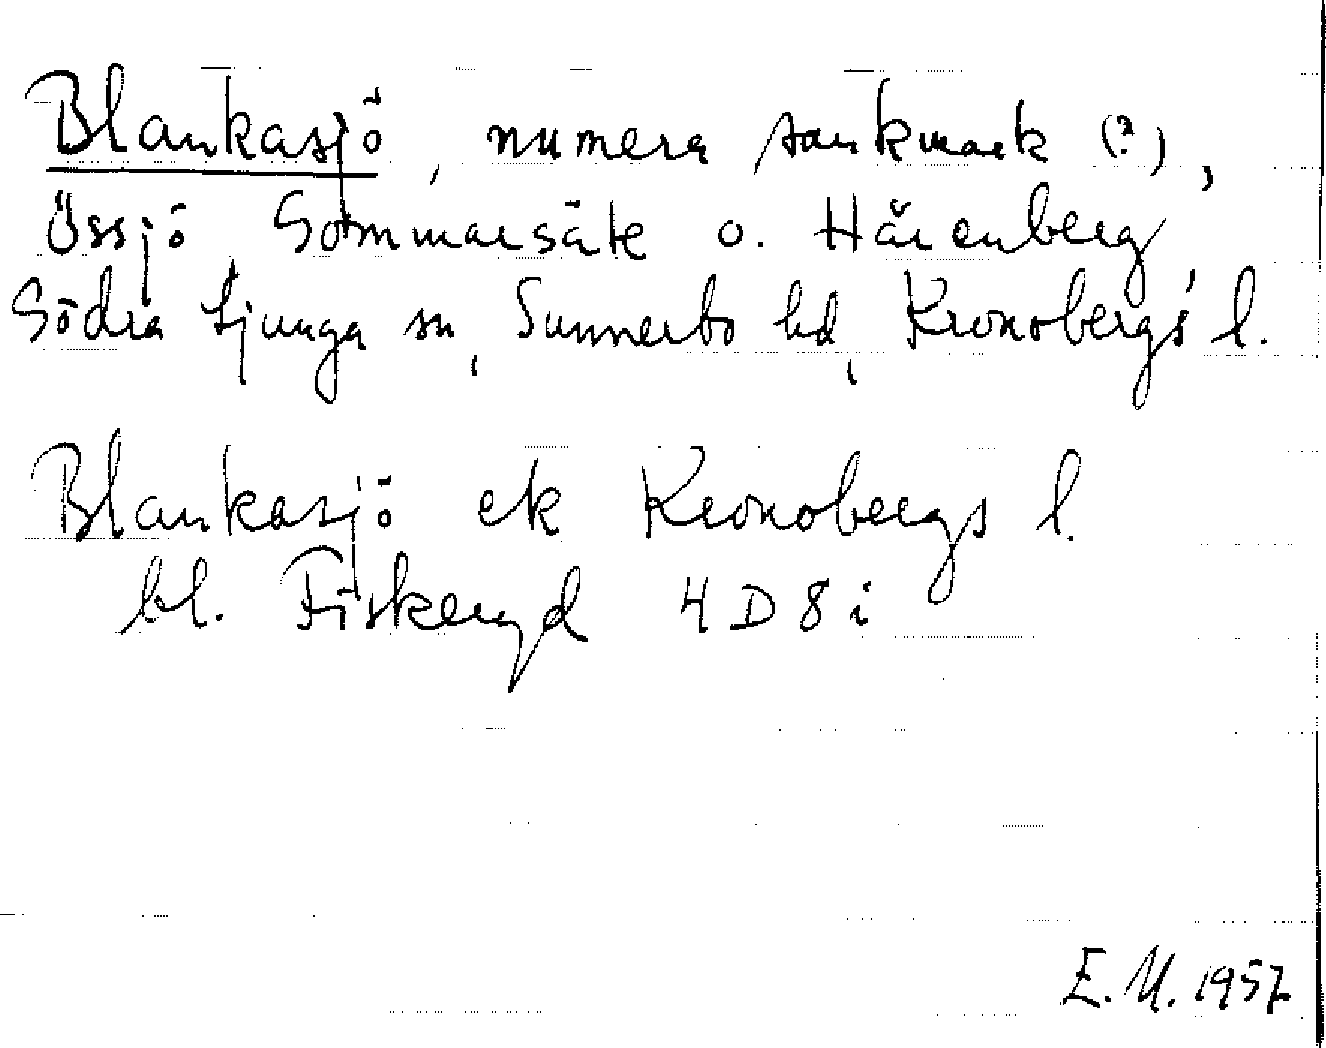 Blankasjö, numera sankmark (?),
Össjö, Sommarsäte o. Härenberg,
Södra Ljunga sn, Sunnerbo hd, Kronobergs l.
Blankasjö ek Kronobergs l.
bl. Fiskeryd 4D8i
E.M. 1957